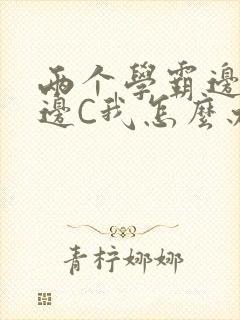 两个學霸邊
邊C我怎麼
青柠娜娜